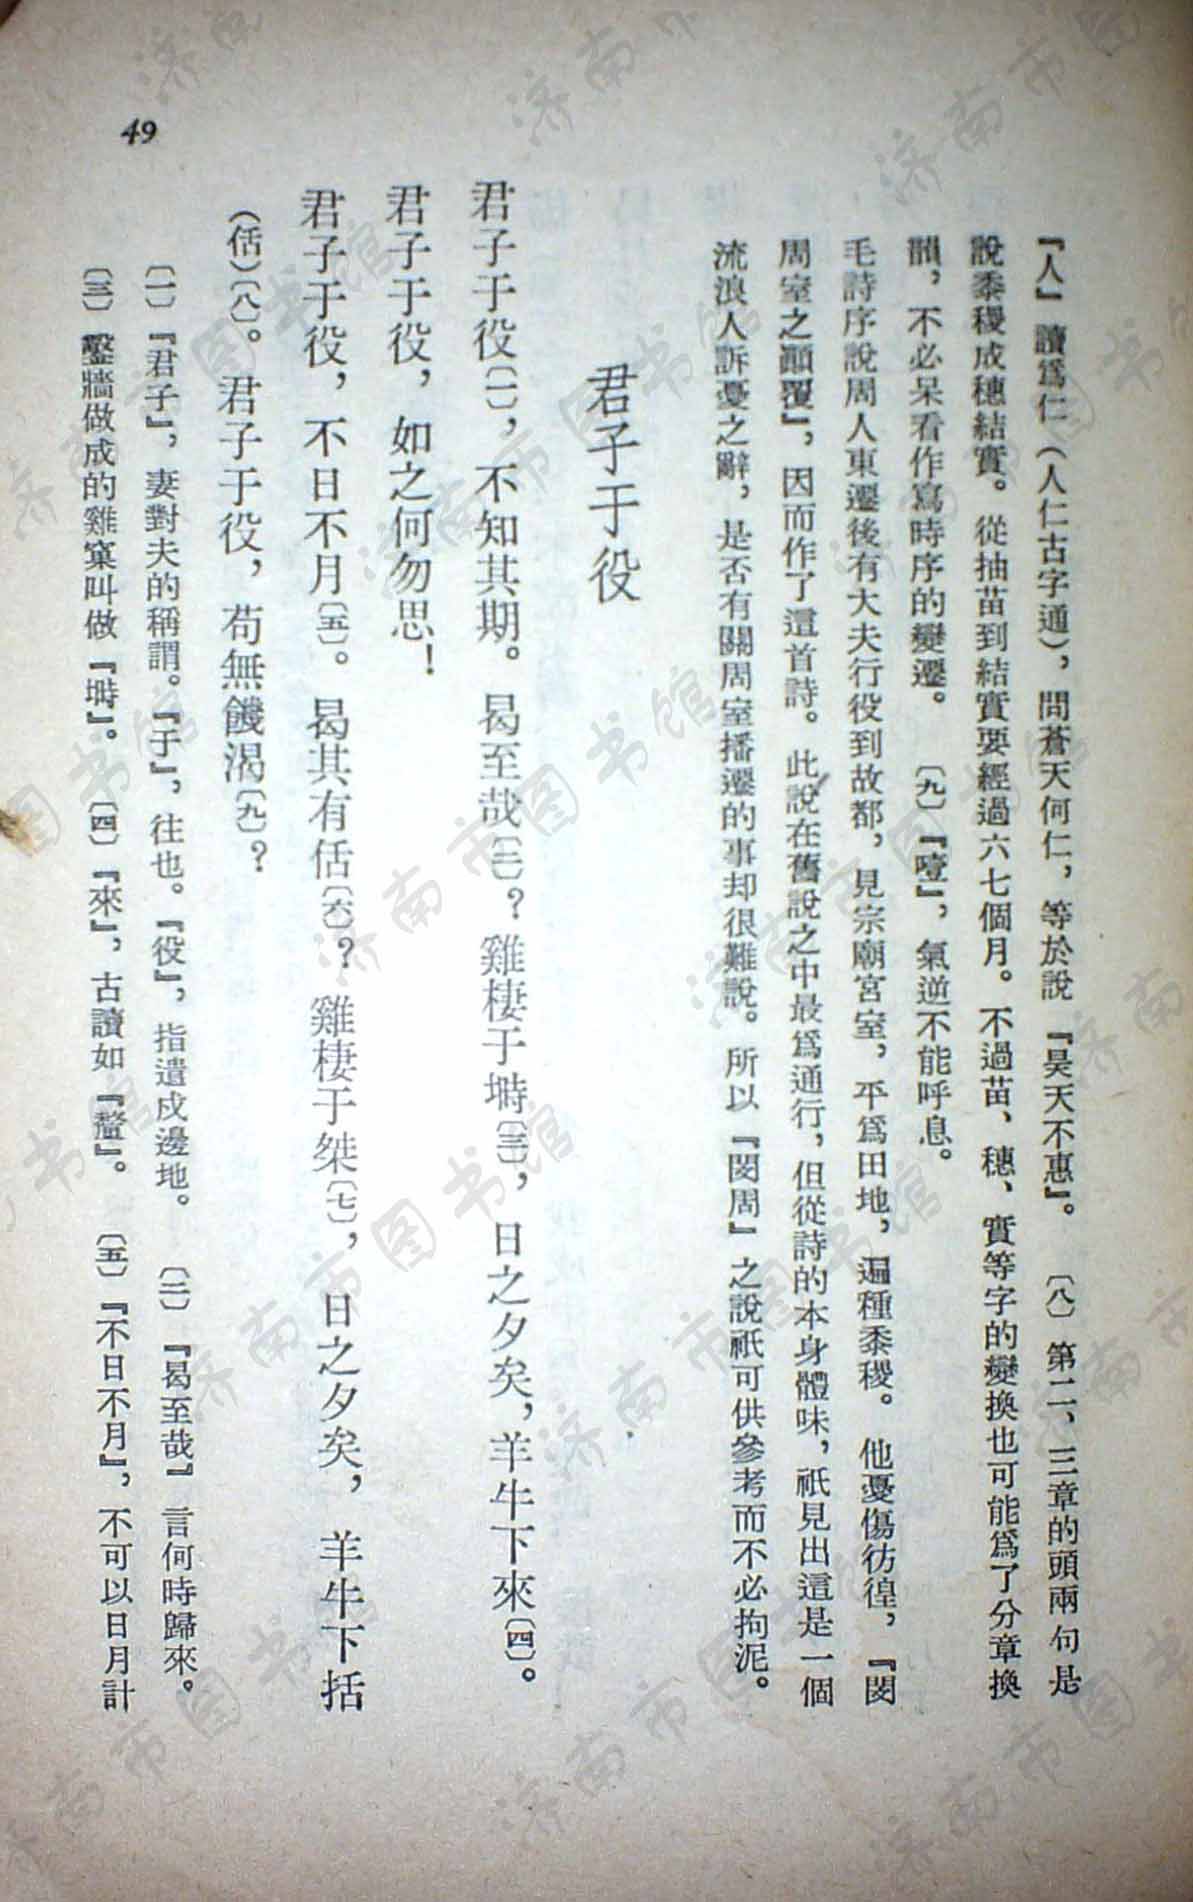 『人』讀爲仁(人仁古字通),問蒼天何仁,等於說『昊天不惠』。　〔八〕第二、三章的頭兩句是
說黍稷成穗結實。從抽苗到結實要經過六七個月。不過苗、穗、實等字的變換也可能爲了分章換
韻,不必呆看作寫時序的變遷。　〔九〕『噎』,氣逆不能呼息。
毛詩序說周人東遷後有大夫行役到故都,見宗廟宮室,平爲田地,遍種黍稷。他憂傷彷徨,『閔
周室之顚覆』,因而作了這首詩。此說在舊說之中最爲通行,但從詩的本身體味,祇見出這是一個
流浪人訴憂之辭,是否有關周室播遷的事却很難說。所以『閔周』之說祇可供參考而不必拘泥。
君子于役
君子于役〔一〕,不知其期。曷至哉〔二〕?雞棲于塒〔三〕,日之夕矣,羊牛下來〔四〕。
君子于役,如之何勿思!
君子于役,不日不月〔五〕。曷其有佸〔六〕?雞棲于桀〔七〕,日之夕矣,羊牛下括
(佸)〔八〕。君子于役,苟無饑渴〔九〕?
〔一〕『君子』,妻對夫的稱謂。『于』,往也。『役』,指遣戍邊地。　〔二〕『曷至哉』言何時歸來。
〔三〕鑿牆做成的雞窠叫做『塒』。　〔四〕『來』,古讀如『釐』。　〔五〕『不日不月』,不可以日月計
49
济南市图书馆